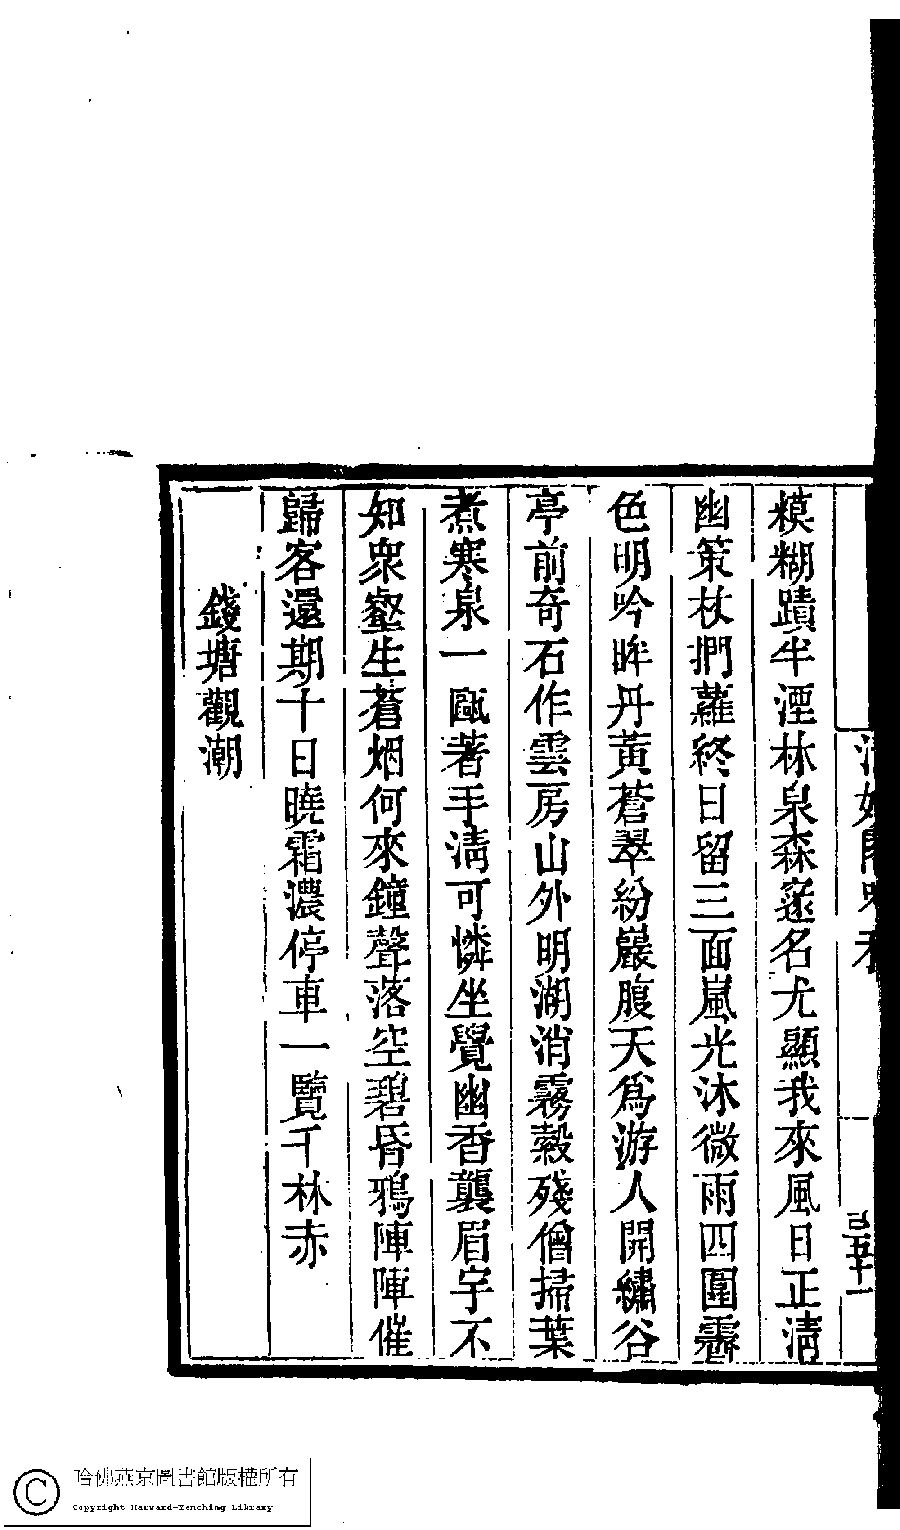 糢糊蹟半湮林泉森邃名尤顯我來風日正清
幽策杖捫蘿終日留三面嵐光沐微雨四圍霽
色明吟眸丹黃蒼翠紛巖腹天爲游人開繡谷
亭前奇石作雲房山外明湖消霧縠殘僧掃葉
煮寒泉一甌著手淸可憐坐覺幽香襲眉宇不
知衆壑生蒼烟何來鐘聲落空碧昏鴉陣陣催
歸客還期十日曉霜濃停車一覽千林赤
錢塘觀潮
哈佛燕京圖書館版權所有
Copyright Harvard-Yenching Library